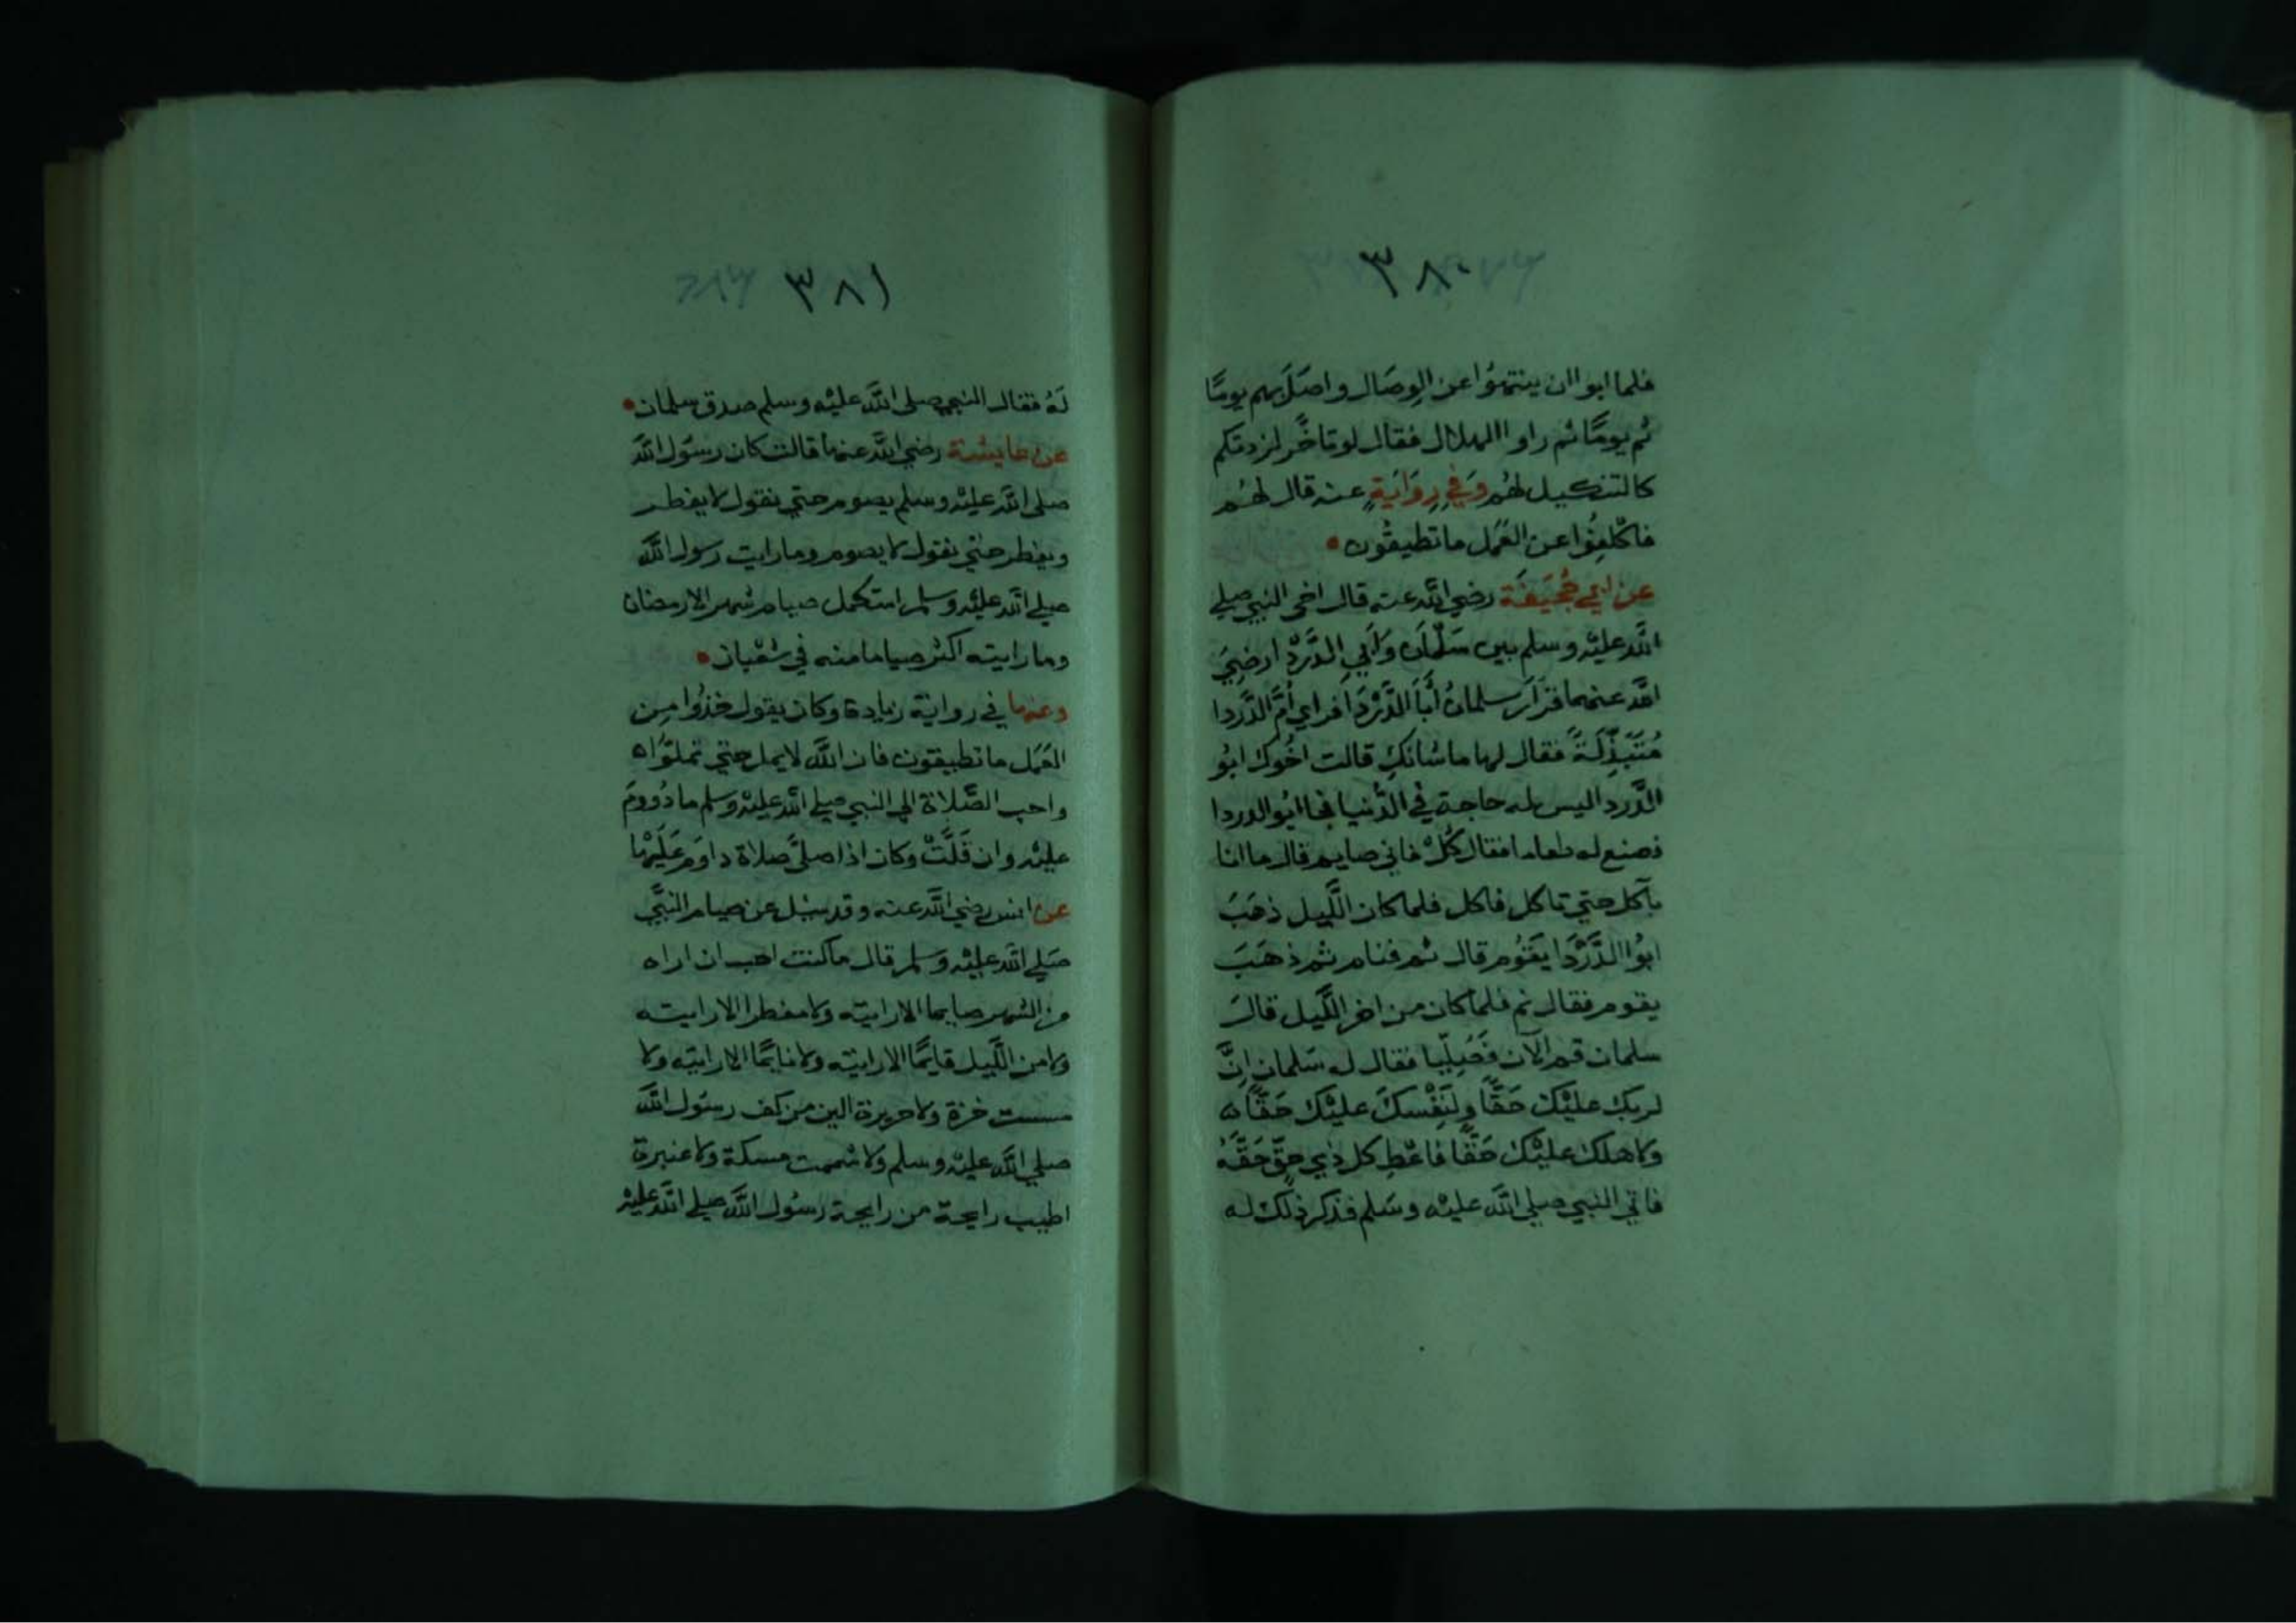 ٣٨٠
فلما ابوا ان ينتهوا عن الوِصَال واصَلَ بهم يومًا
ثم يومًا ثم راوا الهلال فقال لو تاخَّر لزدتكم
كالتنكيل لهُم وَفي رِوَايَةٍ عنه قال لهُم
فاكْلفُوا عن العَمَل ما تطيقُون
عن ابي جُحَيفَة رضي الله عنه قال اخى النبي صلي
الله عليْه وسلم بين سَلْمَان وَابي الدَّرْدَا رضيَ
الله عنهما فزَارَ سلمانُ أَبَا الدَّرْدَا فراي أمَّ الدَّردا
مُتَبَذِّلَةً فقال لها ما شانكِ قالت اخُوك ابُو
الدَّرداليس له حاجة في الدُّنيا فجا ابُو الدردا
فصنع له طعاما فقال كُلْ فاني صايم قال ما انا
بآكل حتي تاكل فاكل فلما كان اللَّيل ذهَبَ
ابُوا الدَّرْدَا يَقوُم قال نم فنام ثم ذهَبَ
يقوم فقال نم فلما كان من اخر اللَّيل قالَ
سلمان قم الآن فَصَلِّيا فقال له سَلمان اِنَّ
لربك عليْك حَقًّا وِلنَفْسكَ عليْك حَقًّا
ولاهلك عليْك حَقًّا فاعْطِ كل ذي حقٍّ حَقَّهُ
فاتي النبي صلي الله عليْه وسَلم فذكر ذلك له
٣٨١
لهُ فقال النبي صلى الله عليْه وسلم صدق سلمان
عن عايشة رضي الله عنها قالت كان رسُول الله
صلى الله عليْه وسلم يصوم حتي نقول لا يفطر
ويفطر حتي نقول لا يصوم وما رايت رسول الله
صلي الله عليْه وسلم استكمل صيام شهر الا رمضان
وما رايته اكثر صياما منه في شعْبان
وعنها في رواية زيادة وكان يقول خذُوا مِن
العَمَل ما تطيقون فان الله لا يمل حتي تملّوَاه
واحب الصَّلاة الي النبي صلي الله عليْه وسلم ما دُووِمَ
عليْه وان قَلَّتْ وكان اذا صلَّي صلاة داوَم عَلَيْها
عن انس رضي الله عنه وقد سُئِل عن صيام النبَّي
صَلي الله عليْه وَسلم قال ما كنت احب ان اراه
من الشهر صايما الا رايته ولا مفطرا الا رايته
ولا من اللَّيل قايمًا الا رايته ولا نايمًا الا رايته ولا
مسست خزة ولا حريرة الين من كف رسُول الله
صلي الله عليْه وسلم ولا شممت مسكة ولا عنبرة
اطيب رايحة من رايحة رسُول الله صلي الله عليْه